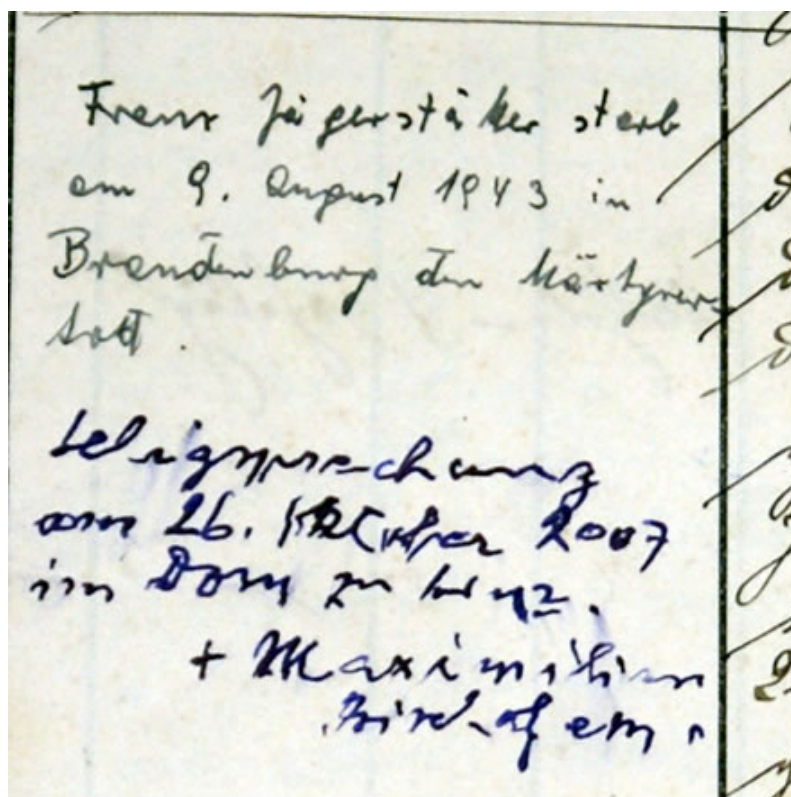 Franz Jägerstätter starb
am 9. August 1943 in
Brandenburg den Märtyrer-
tod.
Seligsprechung
am 26. Oktober 2007
im Dom zu Linz.
+ Maximilian
Bischof em.